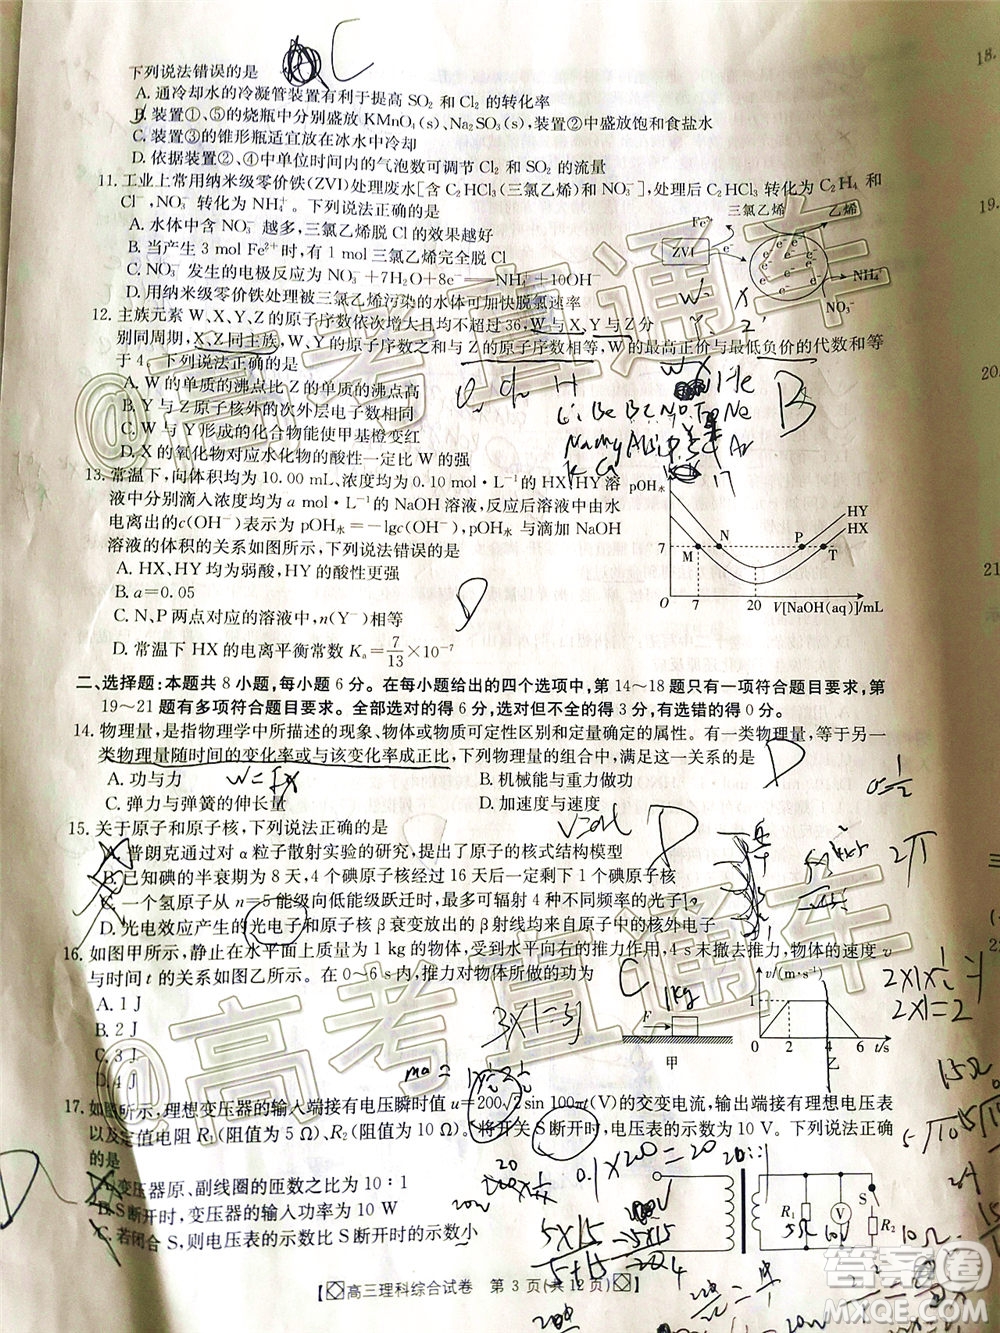 C
下列说法错误的是
A. 通冷却水的冷凝管装置有利于提高 SO₂ 和 Cl₂ 的转化率
B. 装置①、⑤的烧瓶中分别盛放 KMnO₄(s)、Na₂SO₃(s),装置②中盛放饱和食盐水
C. 装置③的锥形瓶适宜放在冰水中冷却
D. 依据装置②、④中单位时间内的气泡数可调节 Cl₂ 和 SO₂ 的流量
11. 工业上常用纳米级零价铁(ZVI)处理废水[含 C₂HCl₃(三氯乙烯)和 NO₃⁻],处理后 C₂HCl₃ 转化为 C₂H₄ 和
Cl⁻,NO₃⁻ 转化为 NH₄⁺。下列说法正确的是
A. 水体中含 NO₃⁻ 越多,三氯乙烯脱 Cl 的效果越好
B. 当产生 3 mol Fe²⁺ 时,有 1 mol 三氯乙烯完全脱 Cl
C. NO₃⁻ 发生的电极反应为 NO₃⁻+7H₂O+8e⁻═NH₄⁺+10OH⁻
D. 用纳米级零价铁处理被三氯乙烯污染的水体可加快脱氯速率
Fe²⁺ 三氯乙烯 乙烯
ZVI e⁻
NH₄⁺
NO₃⁻
12. 主族元素 W、X、Y、Z 的原子序数依次增大且均不超过 36,W 与 X、Y 与 Z 分
别同周期,X、Z 同主族,W、Y 的原子序数之和与 Z 的原子序数相等,W 的最高正价与最低负价的代数和等
于 4。下列说法正确的是
A. W 的单质的沸点比 Z 的单质的沸点高
B. Y 与 Z 原子核外的次外层电子数相同
C. W 与 Y 形成的化合物能使甲基橙变红
D. X 的氧化物对应水化物的酸性一定比 W 的强
B
13. 常温下,向体积均为 10.00 mL、浓度均为 0.10 mol·L⁻¹ 的 HX、HY 溶
液中分别滴入浓度均为 a mol·L⁻¹ 的 NaOH 溶液,反应后溶液中水
电离出的c(OH⁻)表示为 pOH水=−lgc(OH⁻),pOH水 与滴加 NaOH
溶液的体积的关系如图所示,下列说法错误的是
A. HX、HY 均为弱酸,HY 的酸性更强
B. a=0.05
C. N、P 两点对应的溶液中,n(Y⁻)相等
D. 常温下 HX 的电离平衡常数 Kₐ=7/13×10⁻⁷
D
pOH水
HY
HX
7 M N P T
0 7 20 V[NaOH(aq)]/mL
二、选择题:本题共 8 小题,每小题 6 分。在每小题给出的四个选项中,第 14~18 题只有一项符合题目要求,第
19~21 题有多项符合题目要求。全部选对的得 6 分,选对但不全的得 3 分,有选错的得 0 分。
14. 物理量,是指物理学中所描述的现象、物体或物质可定性区别和定量确定的属性。有一类物理量,等于另一
类物理量随时间的变化率或与该变化率成正比,下列物理量的组合中,满足这一关系的是
A. 功与力
B. 机械能与重力做功
C. 弹力与弹簧的伸长量
D. 加速度与速度
D
15. 关于原子和原子核,下列说法正确的是
A. 普朗克通过对 α 粒子散射实验的研究,提出了原子的核式结构模型
B. 已知碘的半衰期为 8 天,4 个碘原子核经过 16 天后一定剩下 1 个碘原子核
C. 一个氢原子从 n=5 能级向低能级跃迁时,最多可辐射 4 种不同频率的光子
D. 光电效应产生的光电子和原子核 β 衰变放出的 β 射线均来自原子中的核外电子
16. 如图甲所示,静止在水平面上质量为 1 kg 的物体,受到水平向右的推力作用,4 s 末撤去推力,物体的速度 v
与时间 t 的关系如图乙所示。在 0~6 s 内,推力对物体所做的功为
A. 1 J
B. 2 J
C. 3 J
D. 4 J
C
F
甲
v/(m·s⁻¹)
1
0 2 4 6 t/s
乙
17. 如图所示,理想变压器的输入端接有电压瞬时值 u=200√2sin 100πt(V)的交变电流,输出端接有理想电压表
以及定值电阻 R₁(阻值为 5 Ω)、R₂(阻值为 10 Ω)。将开关 S 断开时,电压表的示数为 10 V。下列说法正确
的是
A. 变压器原、副线圈的匝数之比为 10∶1
B. S 断开时,变压器的输入功率为 10 W
C. 若闭合 S,则电压表的示数比 S 断开时的示数小
D
R₁ V S R₂
【高三理科综合试卷 第 3 页(共 12 页)】
@高考直通车
@高考直通车
答案圈
MXQE.COM
18.
19.
20.
21